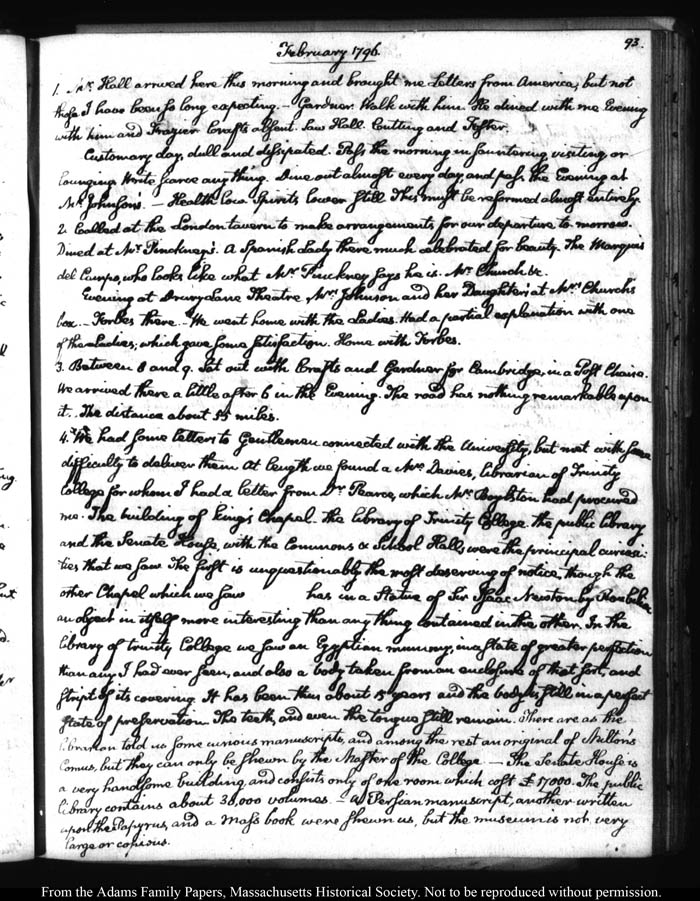 February 1796.
93.
1. Mr. Hall arrived here this morning and brought me Letters from America, but not
those I have been so long expecting. Gardner. Walk with him. He dined with me Evening
with him and Frazier. Crafts absent. Saw Hall. Cutting and Foster.
Customary day, dull and dissipated. Pass the morning in sauntering, visiting, or
lounging. Write scarce any thing. Dine out almost every day, and pass the Evening at
Mr. Johnson's. — Health low. Spirits lower still. This must be reformed almost entirely.
2. Called at the London tavern to make arrangements for our departure to-morrow.
Dined at Mr. Pinckney's. A Spanish Lady there much celebrated for beauty. The Marquis
del Campo, who looks like what Mr. Pinckney says he is. Mr. Church &c.
Evening at Drury Lane Theatre, Mrs. Johnson and her Daughters at Mrs. Church's
box. Forbes there. We went home with the Ladies. Had a partial explanation with one
of the Ladies; which gave some satisfaction. Home with Forbes.
3. Between 8 and 9. Set out with Crafts and Gardner for Cambridge, in a Post Chaise.
We arrived there a little after 6 in the Evening. The road has nothing remarkable upon
it. The distance about 55 miles.
4. We had some letters to Gentlemen connected with the University, but met with some
difficulty to deliver them. At length we found a Mr. Davies, librarian of Trinity
College for whom I had a letter from Dr. Pearce, which Mr. Boylston had procured
me. The building of King's Chapel. the library of Trinity College. the public library
and the Senate House, with the Commons & School Halls, were the principal curiosi:
ties that we saw. The first is unquestionably the most deserving of notice, though the
other Chapel which we saw has in a Statue of Sir Isaac Newton by Roubiliac
an object in itself more interesting than any thing contained in the other. In the
library of trinity College we saw an Egyptian mummy, in a state of greater perfection
than any I had ever seen, and also a body taken from an enclosure of that sort, and
stript of its covering. It has been thus about 15 years and the body is still in a perfect
state of preservation. The teeth, and even the tongue still remain. There are as the
librarian told us some curious manuscripts, and among the rest an original of Milton's
Comus, but they can only be shewn by the Master of the College — The Senate House is
a very handsome building, and consists only of one room which cost £17000. The public
library contains about 30,000 volumes. — A Persian manuscript, another written
upon the Papyrus, and a Mass book were shewn us, but the museum is not very
large or copious.
From the Adams Family Papers, Massachusetts Historical Society. Not to be reproduced without permission.